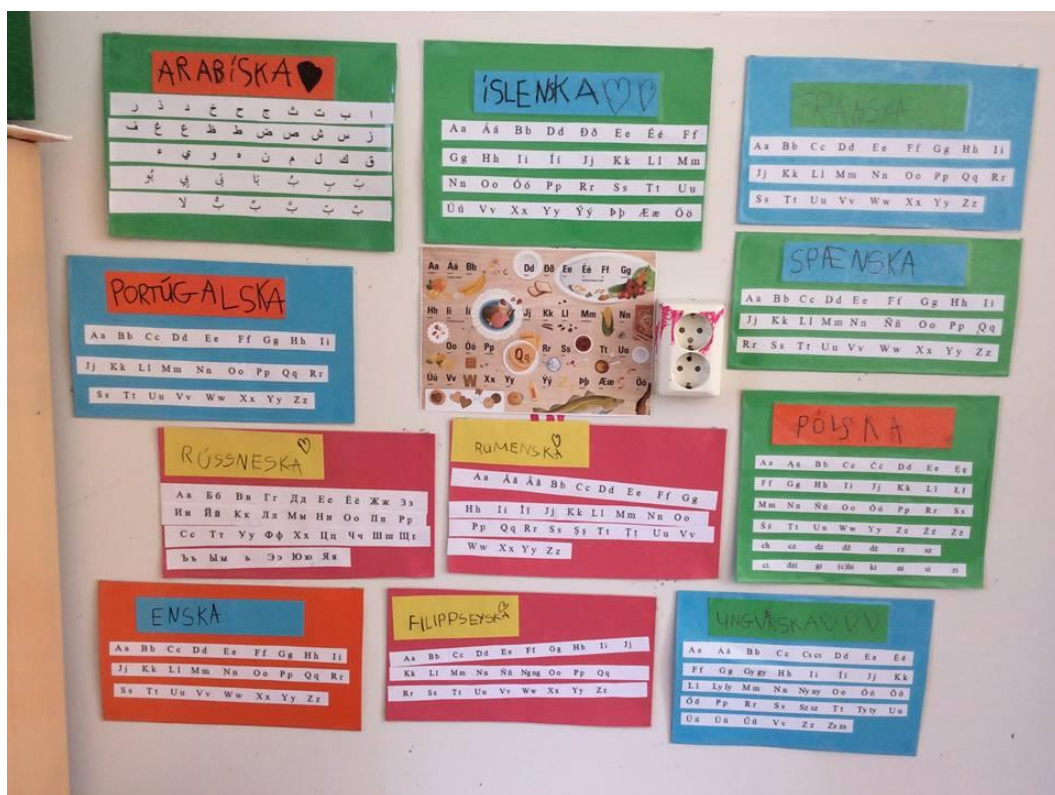 ARABÍSKA
ا ب ت ث ج ح خ د ذ ر
ز س ش ص ض ط ظ ع غ ف
ق ك ل م ن ه و ي ء
ÍSLENSKA
Aa Áá Bb Dd Ðð Ee Éé Ff
Gg Hh Ii Íí Jj Kk Ll Mm
Nn Oo Óó Pp Rr Ss Tt Uu
Úú Vv Xx Yy Ýý Þþ Ææ Öö
FRANSKA
Aa Bb Cc Dd Ee Ff Gg Hh Ii
Jj Kk Ll Mm Nn Oo Pp Qq Rr
Ss Tt Uu Vv Ww Xx Yy Zz
PORTÚGALSKA
Aa Bb Cc Dd Ee Ff Gg Hh Ii
Jj Kk Ll Mm Nn Oo Pp Qq Rr
Ss Tt Uu Vv Ww Xx Yy Zz
Aa Áá Bb Dd Ðð Ee Éé Ff Gg
Hh Ii Íí Jj Kk Ll Mm Nn
Oo Óó Pp Qq Rr Ss Tt Uu
Úú Vv W Xx Yy Ýý Z Þþ Ææ Öö
SPÆNSKA
Aa Bb Cc Dd Ee Ff Gg Hh Ii
Jj Kk Ll Mm Nn Ññ Oo Pp Qq
Rr Ss Tt Uu Vv Ww Xx Yy Zz
RÚSSNESKA
Аа Бб Вв Гг Дд Ее Ёё Жж Зз
Ии Йй Кк Лл Мм Нн Оо Пп Рр
Сс Тт Уу Фф Хх Цц Чч Шш Щщ
Ъъ Ыы ь Ээ Юю Яя
RÚMENSKA
Aa Ăă Ââ Bb Cc Dd Ee Ff Gg
Hh Ii Îî Jj Kk Ll Mm Nn Oo
Pp Qq Rr Ss Şş Tt Ţţ Uu Vv
Ww Xx Yy Zz
PÓLSKA
Aa Ąą Bb Cc Ćć Dd Ee Ęę
Ff Gg Hh Ii Jj Kk Ll Łł
Mm Nn Ńń Oo Óó Pp Rr Ss
Śś Tt Uu Ww Yy Zz Źź Żż
ch cz dz dź dż rz sz
ci dzi gi (c)hi ki ni si zi
ENSKA
Aa Bb Cc Dd Ee Ff Gg Hh Ii
Jj Kk Ll Mm Nn Oo Pp Qq Rr
Ss Tt Uu Vv Ww Xx Yy Zz
FILIPPSEYSKA
Aa Bb Cc Dd Ee Ff Gg Hh Ii Jj
Kk Ll Mm Nn Ññ Ngng Oo Pp Qq
Rr Ss Tt Uu Vv Ww Xx Yy Zz
UNGVERSKA
Aa Áá Bb Cc Cscs Dd Ee Éé
Ff Gg Gygy Hh Ii Íí Jj Kk
Ll Lyly Mm Nn Nyny Oo Óó Öö
Őő Pp Rr Ss Szsz Tt Tyty Uu
Úú Üü Űű Vv Zz Zszs